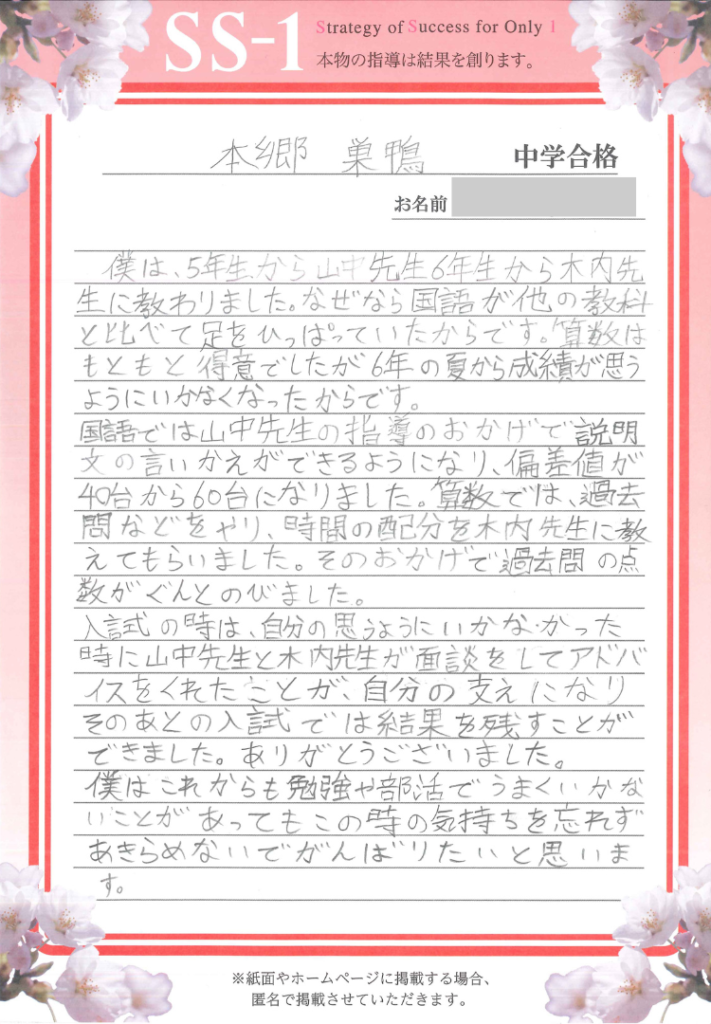 SS-1
Strategy of Success for Only 1
本物の指導は結果を創ります。
本郷 巣鴨 中学合格
お名前
僕は、5年生から山中先生6年生から木内先
生に教わりました。なぜなら国語が他の教科
と比べて足をひっぱっていたからです。算数は
もともと得意でしたが6年の夏から成績が思う
ようにいかなくなったからです。
国語では山中先生の指導のおかげで説明
文の言いかえができるようになり、偏差値が
40台から60台になりました。算数では、過去
問などをやり、時間の配分を木内先生に教
えてもらいました。そのおかげで過去問の点
数がぐんとのびました。
入試の時は、自分の思うようにいかなかった
時に山中先生と木内先生が面談をしてアドバ
イスをくれたことが、自分の支えになり
そのあとの入試では結果を残すことが
できました。ありがとうございました。
僕はこれからも勉強や部活でうまくいかな
いことがあってもこの時の気持ちを忘れず
あきらめないでがんばりたいと思いま
す。
※紙面やホームページに掲載する場合、
匿名で掲載させていただきます。